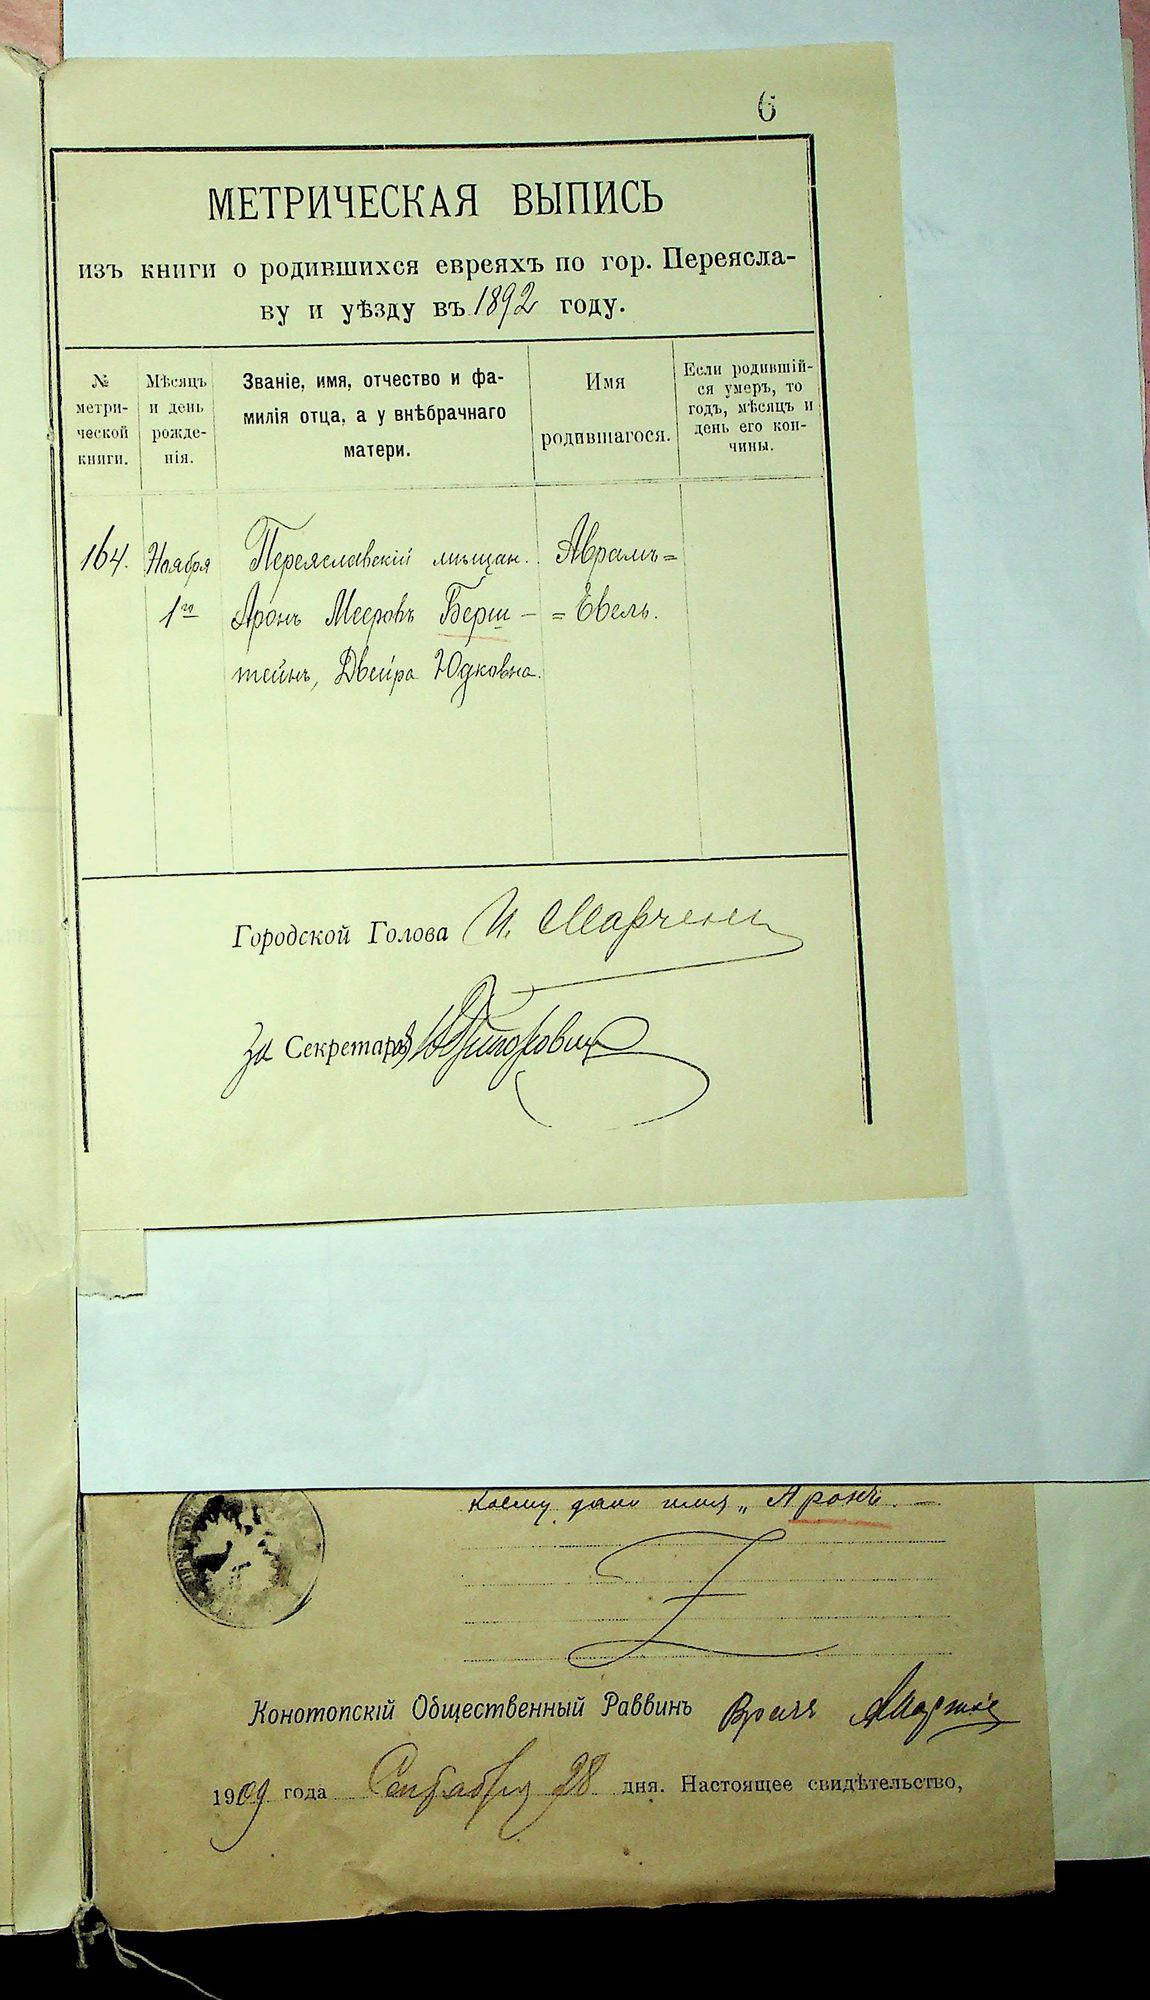 6
МЕТРИЧЕСКАЯ ВЫПИСЬ
изъ книги о родившихся евреяхъ по гор. Переясла-
ву и уѣзду въ 1892 году.
№
метри-
ческой
книги.
Мѣсяцъ
и день
рожде-
нія.
Званіе, имя, отчество и фа-
милія отца, а у внѣбрачнаго
матери.
Имя
родившагося.
Если родившій-
ся умеръ, то
годъ, мѣсяцъ и
день его кон-
чины.
164.
Ноября
1го
Переяславскій мѣщан.
Аронъ Мееровъ Берш-
тейнъ, Двейра Юдковна.
Аврамъ=
=Евель.
Городской Голова И. Марченко
За Секретаря Григорович
коему дано имя „Аронъ. —
Конотопскій Общественный Раввинъ Врачъ
1909 года Сентября 28 дня. Настоящее свидѣтельство,